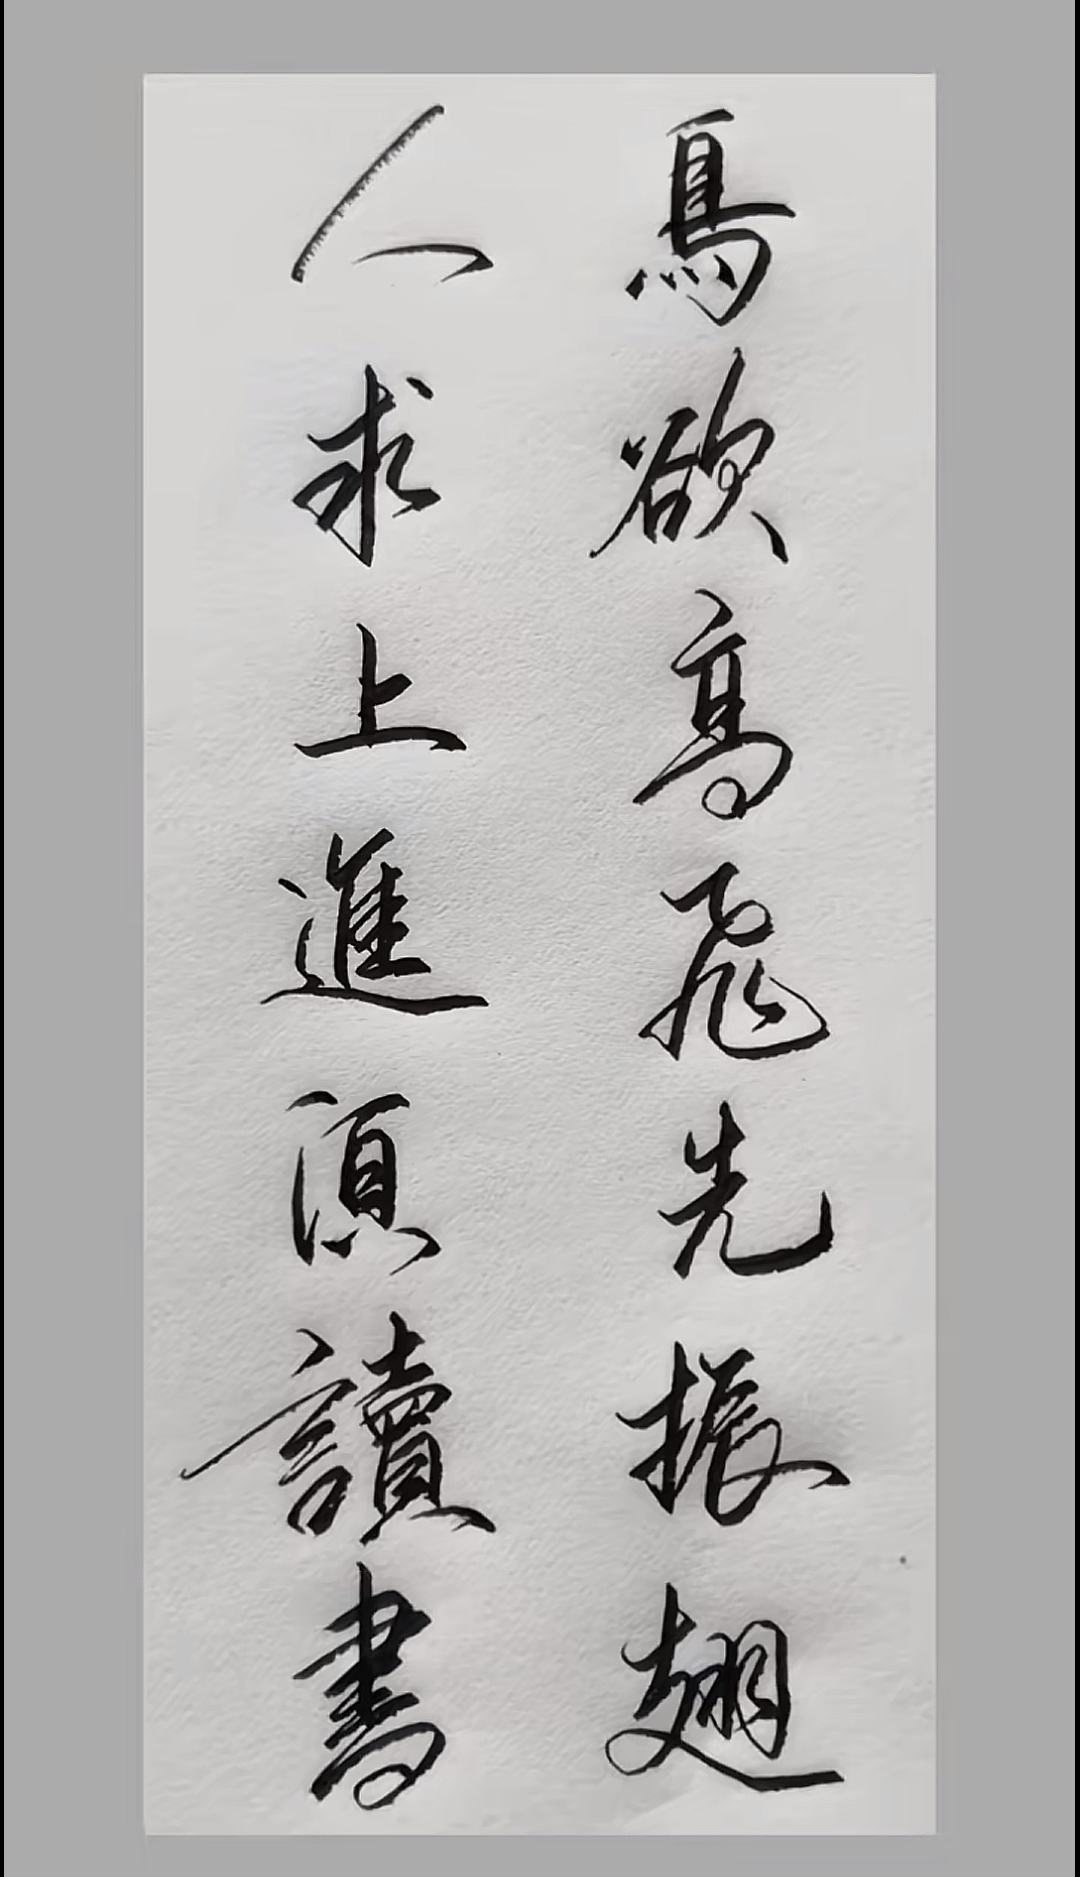 鳥欲高飛先振翅
人求上進須讀書